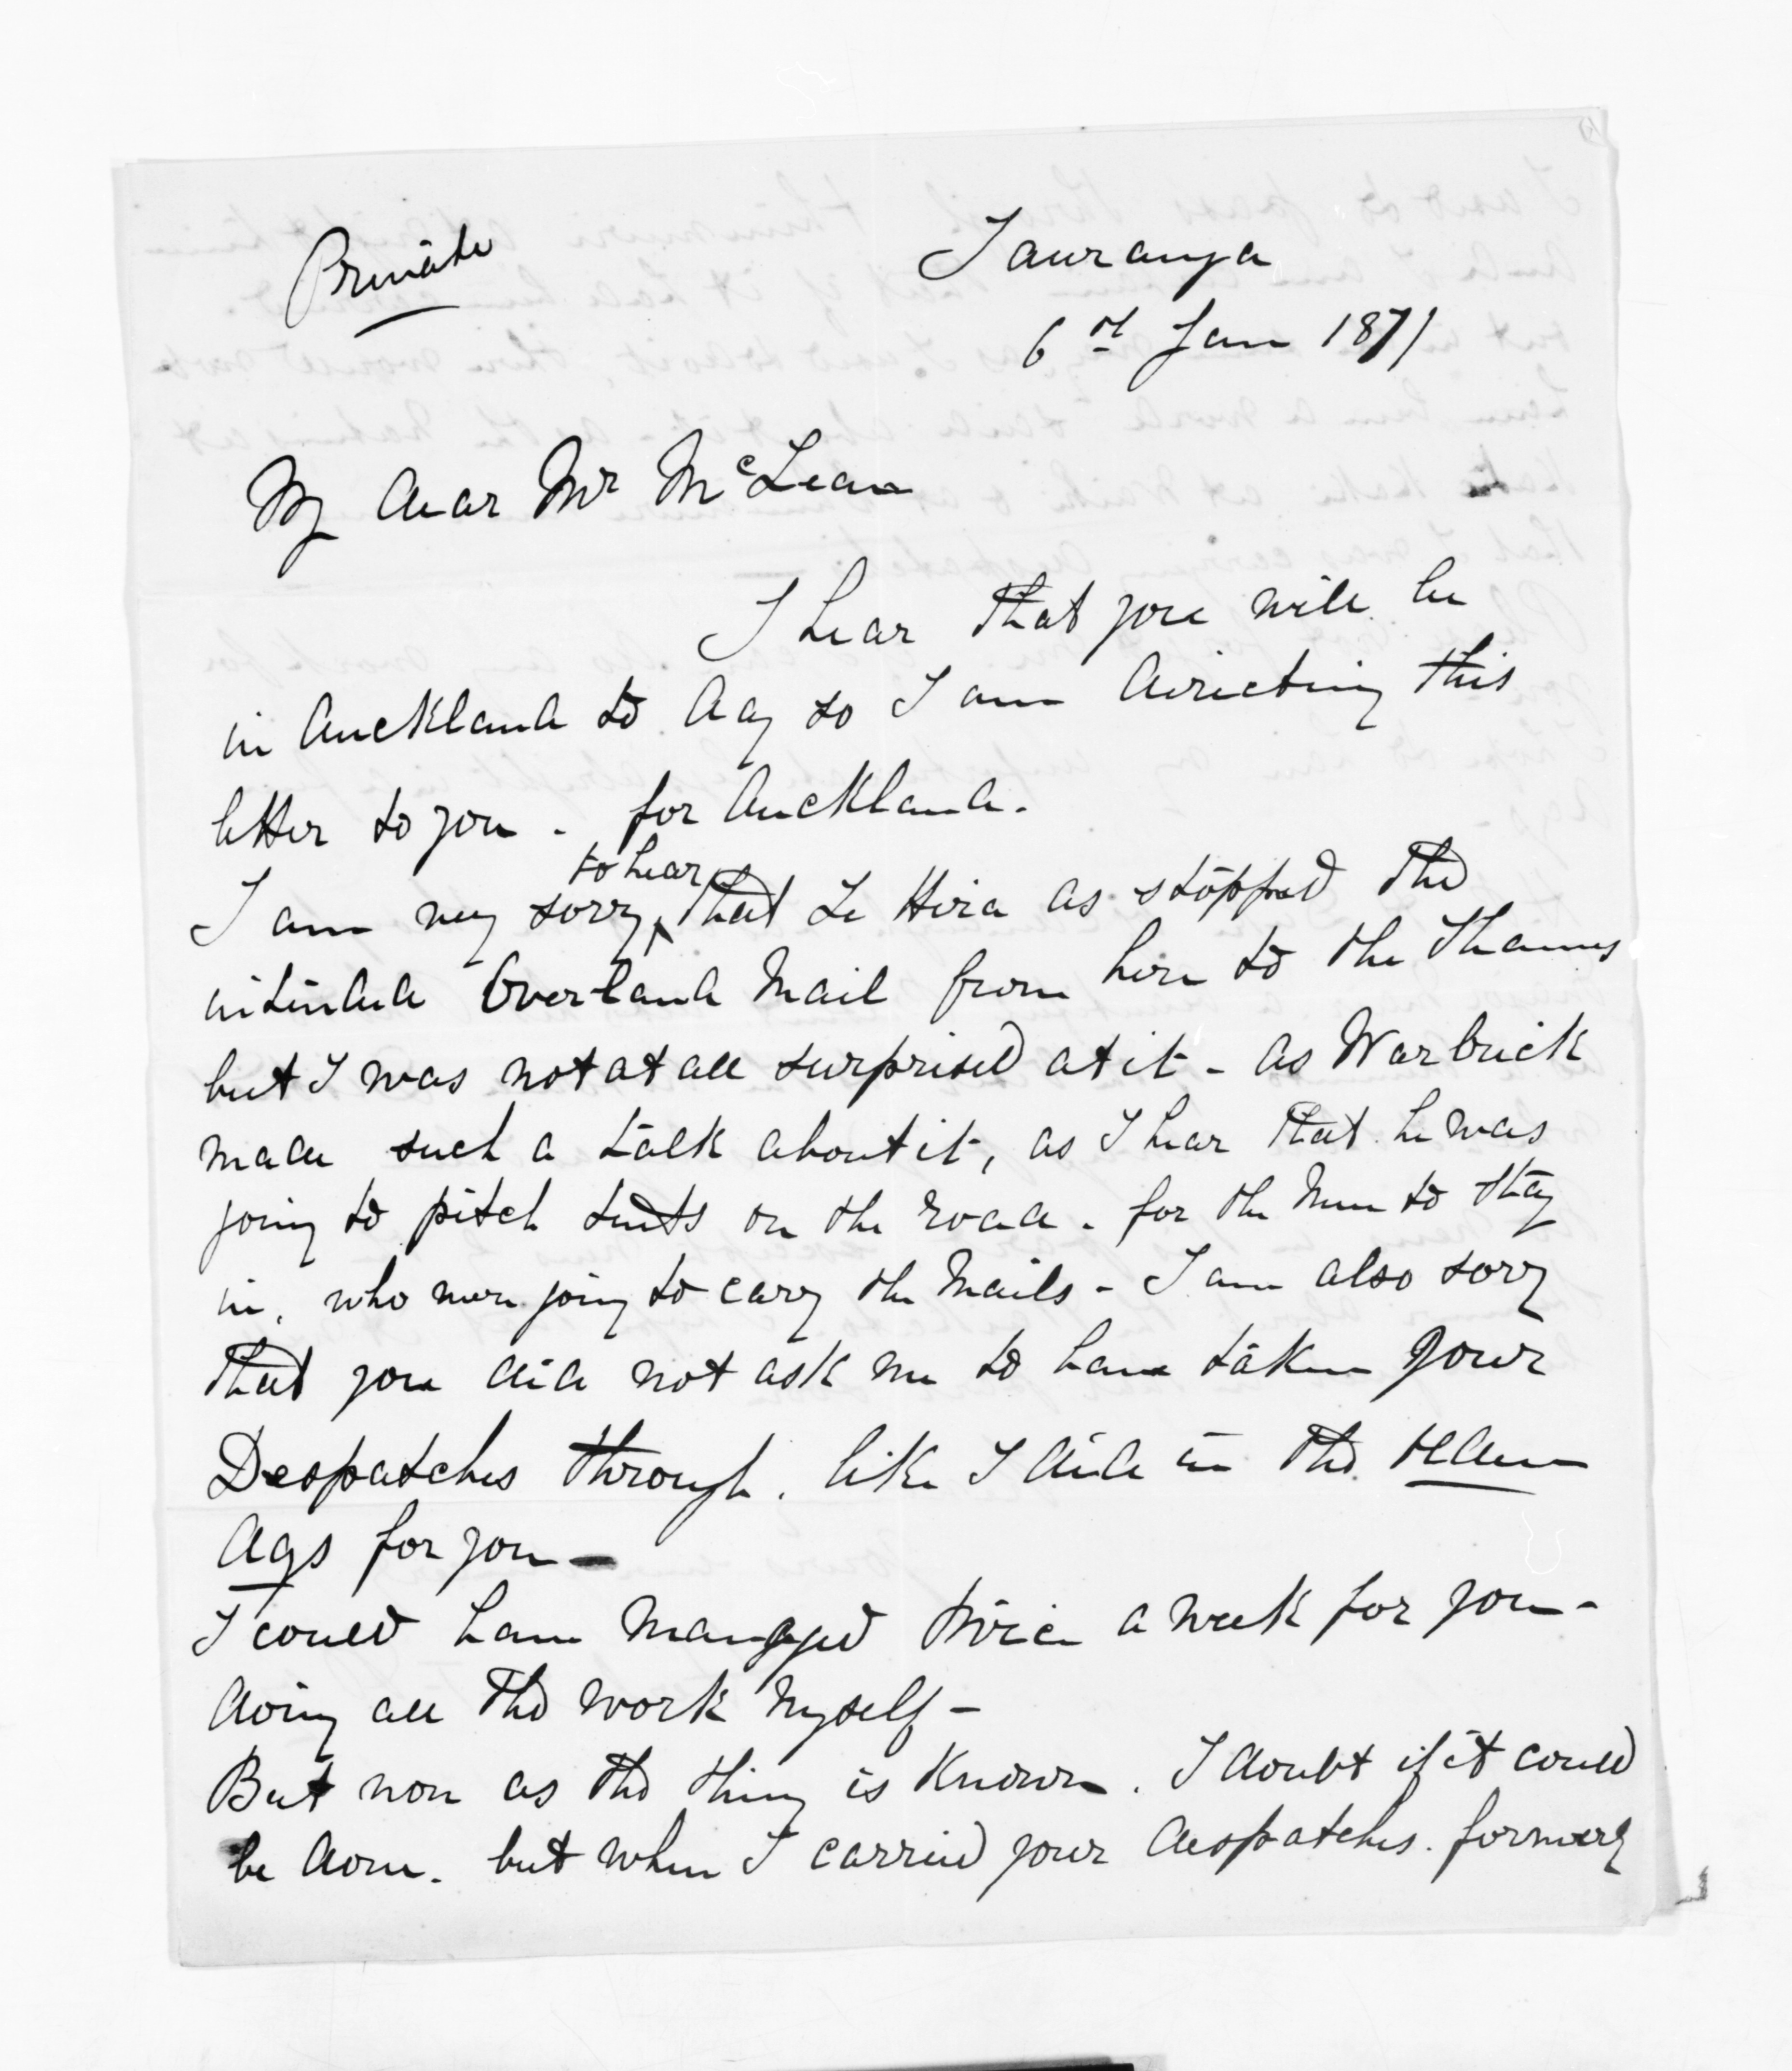 Private
Tauranga
6th Jan 1871
My dear Mr McLean
I hear that you will be
in Auckland to day so I am directing this
letter to you - for Auckland.
to hear
I am very sorry that Te Hira as stopped the
intended Overland Mail from here to the Thames
but I was not at all surprised at it - as Warbrick
made such a talk about it, as I hear that he was
going to pitch tents on the road - for the Men to stay
in, who were going to cary the Mails - I am also sorry
that you did not ask me to have taken your
Despatches through. like I did in the olden
days for you -
I could have managed twice a week for you -
doing all the work myself -
But now as the thing is Known. I doubt if it could
be done. but when I carried your despatches. formerly